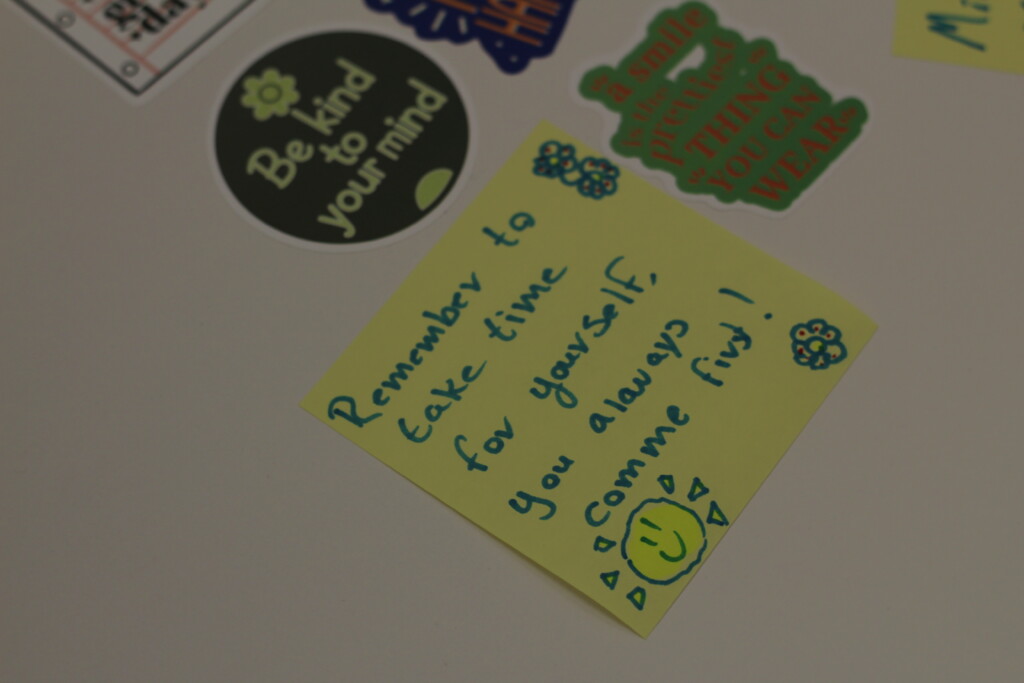 Be kind
to
your mind
a smile
is the
prettiest
THING
YOU CAN
WEAR
Remember to
take time
for yourself,
you always
comme first!
Mi